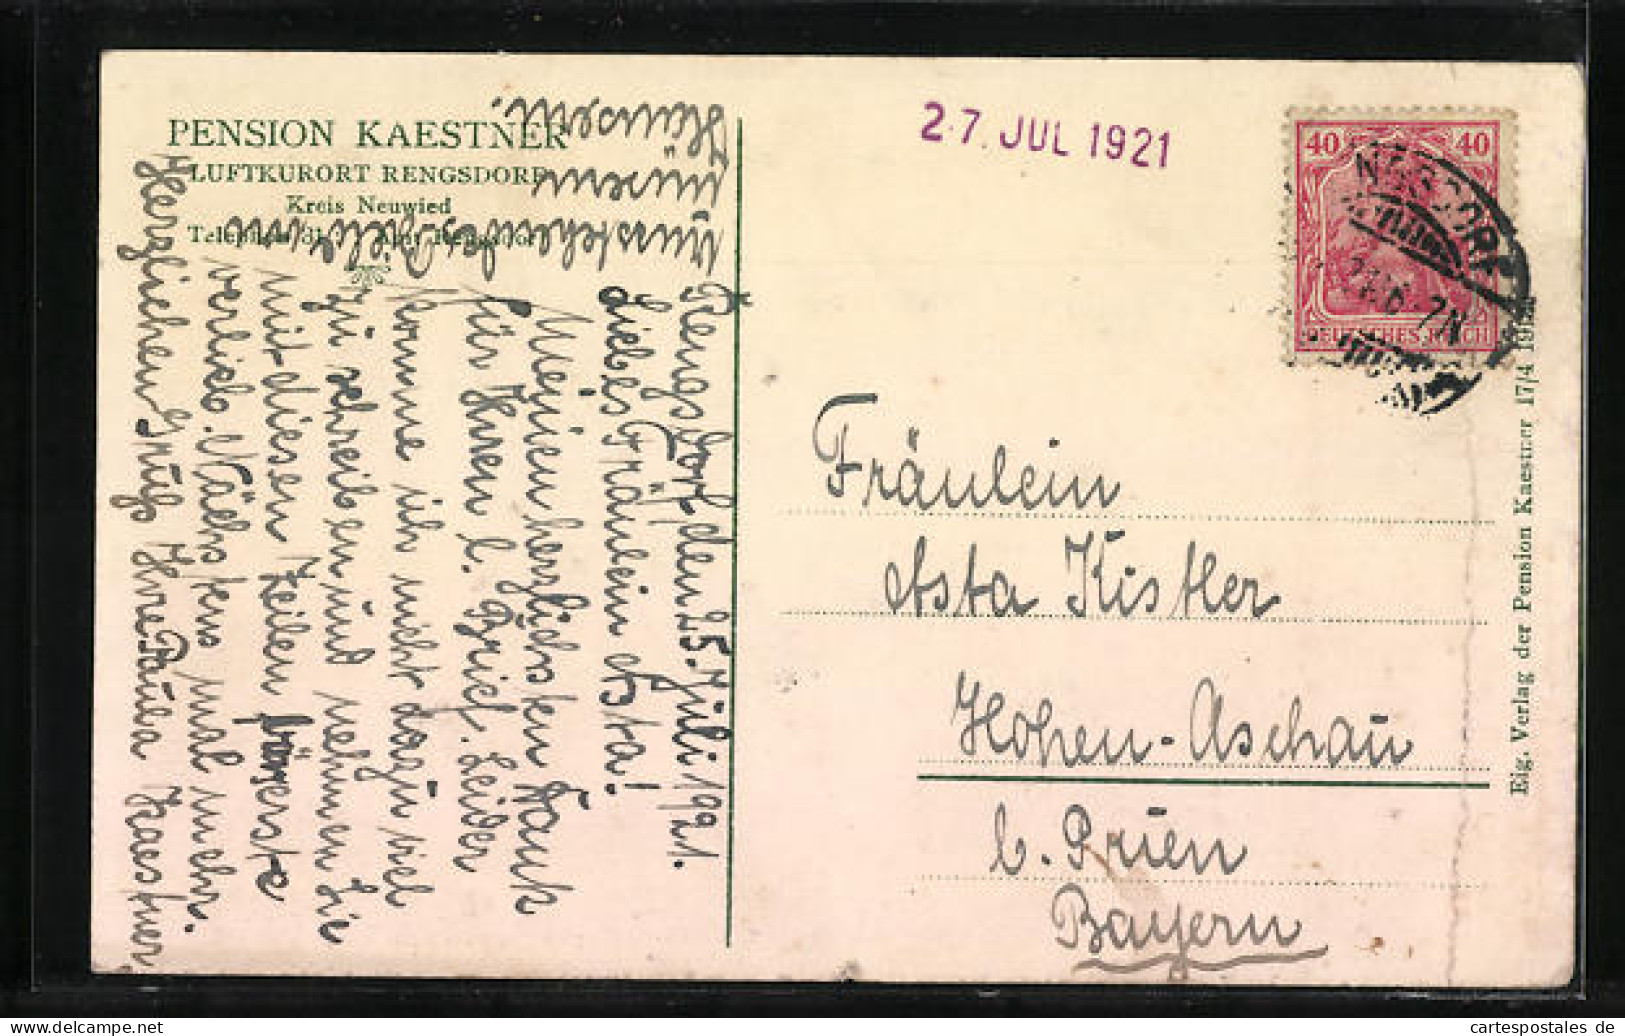 PENSION KAESTNER
LUFTKURORT RENGSDORF
Kreis Neuwied
Telephon 31
Rengsdorf, den 25. Juli 1921.
Liebes Fräulein Asta!
Meinen herzlichsten Dank
für Ihren l. Brief. Leider
komme ich nicht dazu viel
zu schreiben und nehmen Sie
mit diesen Zeilen
verlieb. Nächstens mal mehr.
Herzlichen Gruß Ihre Paula Kaestner
27. JUL 1921
40 40
DEUTSCHES REICH
Fräulein
Asta Kistler
Hohen-Aschau
b. Prien
Bayern
Eig. Verlag der Pension Kaestner 17/4